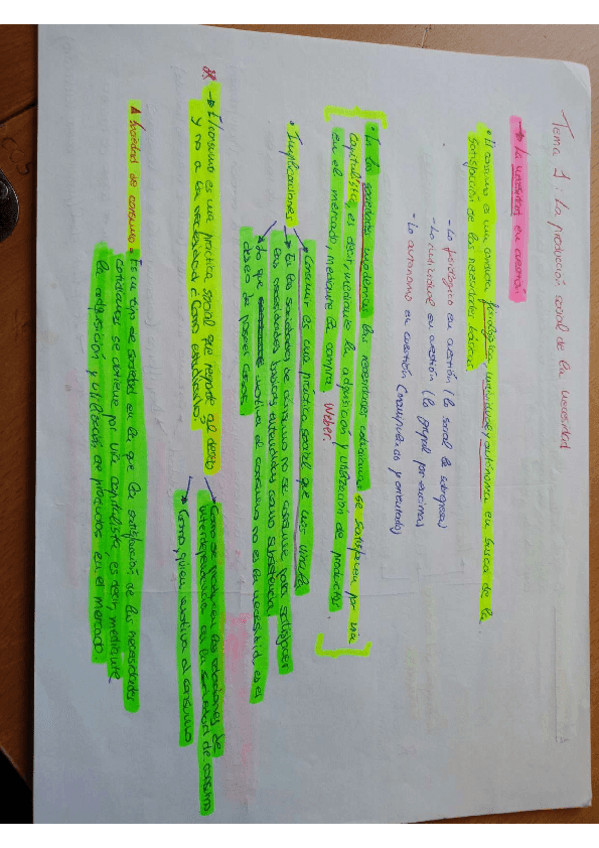 Tema 1: La producción social de la necesidad
→ La necesidad en cuestión
• El consumo es una conducta fisiológica, individual y autónoma en busca de la
satisfacción de las necesidades básicas.
- Lo fisiológico en cuestión (lo social lo sobrepasa)
- Lo individual en cuestión (lo grupal por encima)
- Lo autónomo en cuestión (manipulado y orientado)
• En las sociedades modernas las necesidades cotidianas se satisfacen por vía
capitalista, es decir, mediante la adquisición y utilización de productos
en el mercado, mediante la compra. Weber.
• Implicaciones:
→ Consumir es una práctica social que nos vincula
→ En las sociedades de consumo no se consume para satisfacer
las necesidades básicas entendidas como subsistencia
→ Lo que motiva al consumo no es la necesidad, es el
deseo de poseer cosas
→ El consumo es una práctica social que responde al deseo
y no a la necesidad ¿Cómo estudiarlo?
→ Cómo se producen las relaciones de
interdependencia en la sociedad de consumo
→ Cómo, quien, motiva al consumo
Sociedad de consumo: Es un tipo de sociedad en la que la satisfacción de las necesidades
cotidianas se obtiene por vía capitalista, es decir, mediante
la adquisición y utilización de productos en el mercado